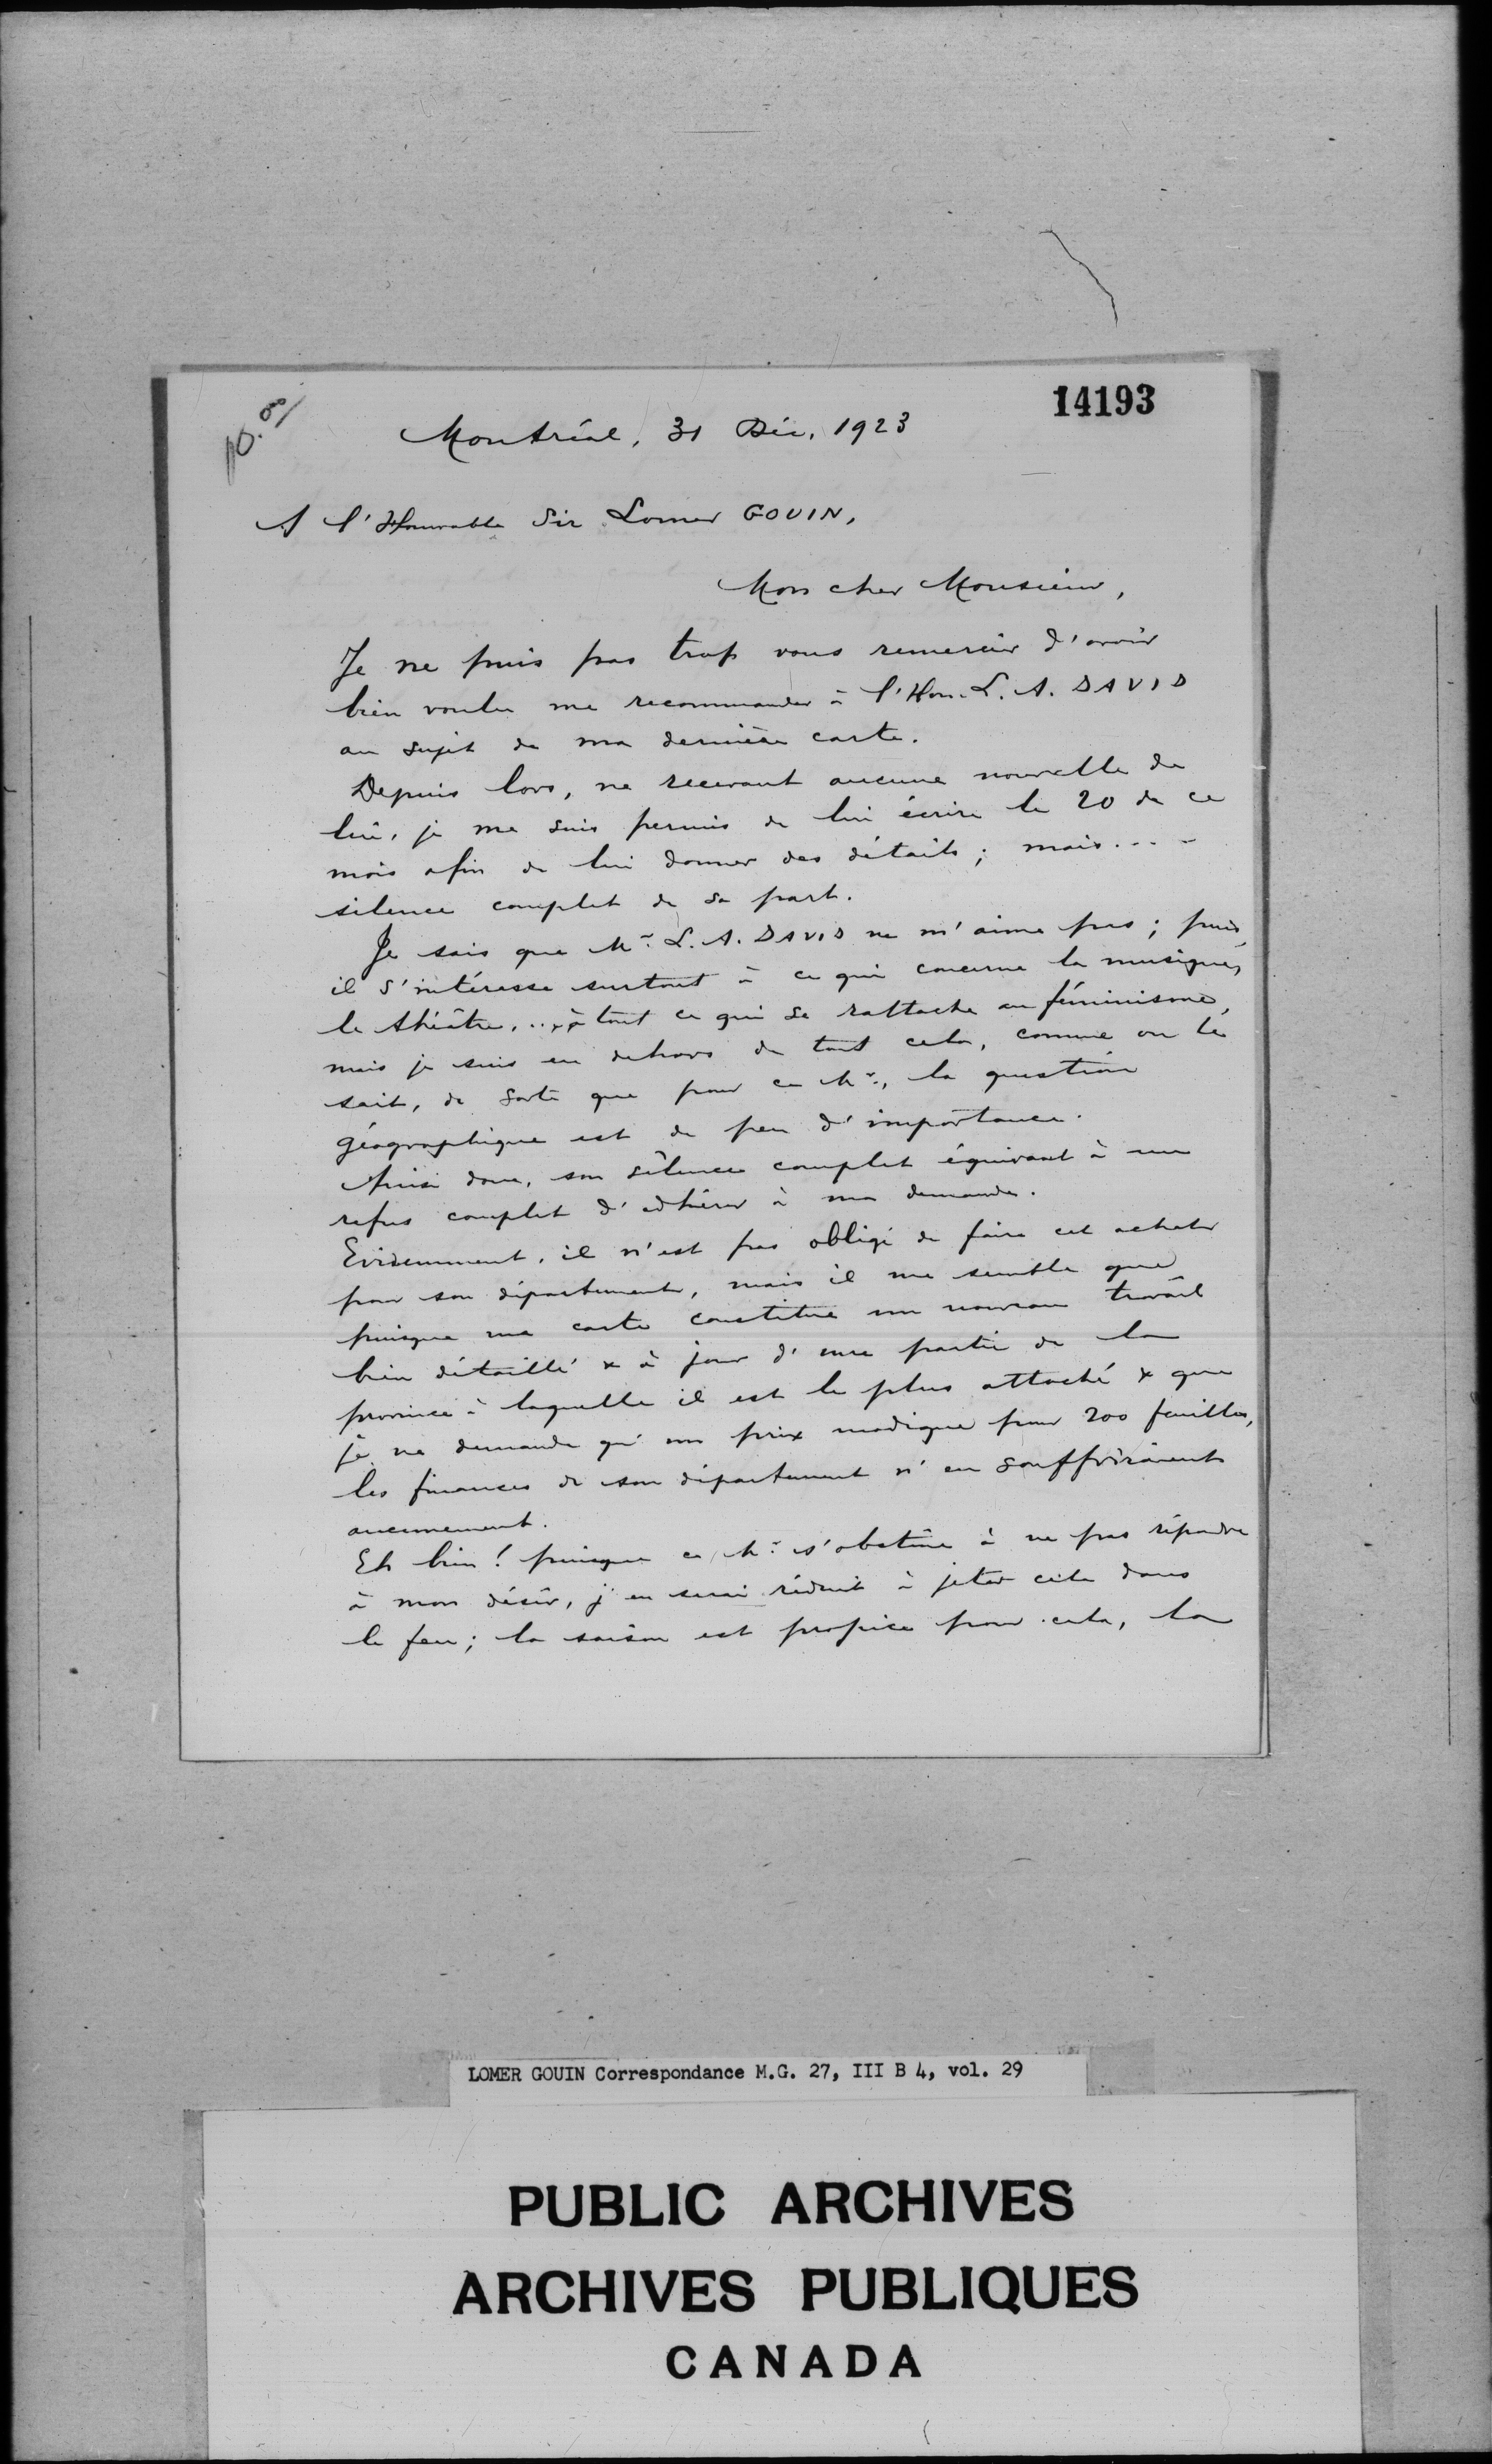 14193
Montréal, 31 Déc. 1923
A l'Honorable Sir Lomer GOUIN,
Mon cher Monsieur,
Je ne puis pas trop vous remercier d'avoir
bien voulu me recommander à l'Hon. L. A. DAVID
au sujet de ma dernière carte.
Depuis lors, ne recevant aucune nouvelle de
lui, je me suis permis de lui écrire le 20 de ce
mois afin de lui donner des détails; mais....
silence complet de sa part.
Je sais que Mr. L. A. DAVID ne m'aime pas; puis,
il s'intéresse surtout à ce qui concerne la musique,
le théâtre, .. & à tout ce qui se rattache au féminisme,
mais je suis en dehors de tout cela, comme on le
sait, de sorte que pour ce Mr., la question
géographique est de peu d'importance.
Ainsi donc, son silence complet équivaut à un
refus complet d'adhérer à ma demande.
Evidemment, il n'est pas obligé de faire cet achat
pour son département, mais il me semble que
puisque ma carte constitue un nouveau travail
bien détaillé & à jour d'une partie de la
province à laquelle il est le plus attaché & que
je ne demande qu'un prix modique pour 200 feuilles,
les finances de son département n'en souffriraient
aucunement.
Eh bien! puisque ce Mr. s'obstine à ne pas répondre
à mon désir, j'en serai réduit à jeter cela dans
le feu; la saison est propice pour cela, la
LOMER GOUIN Correspondance M.G. 27, III B 4, vol. 29
PUBLIC ARCHIVES
ARCHIVES PUBLIQUES
CANADA